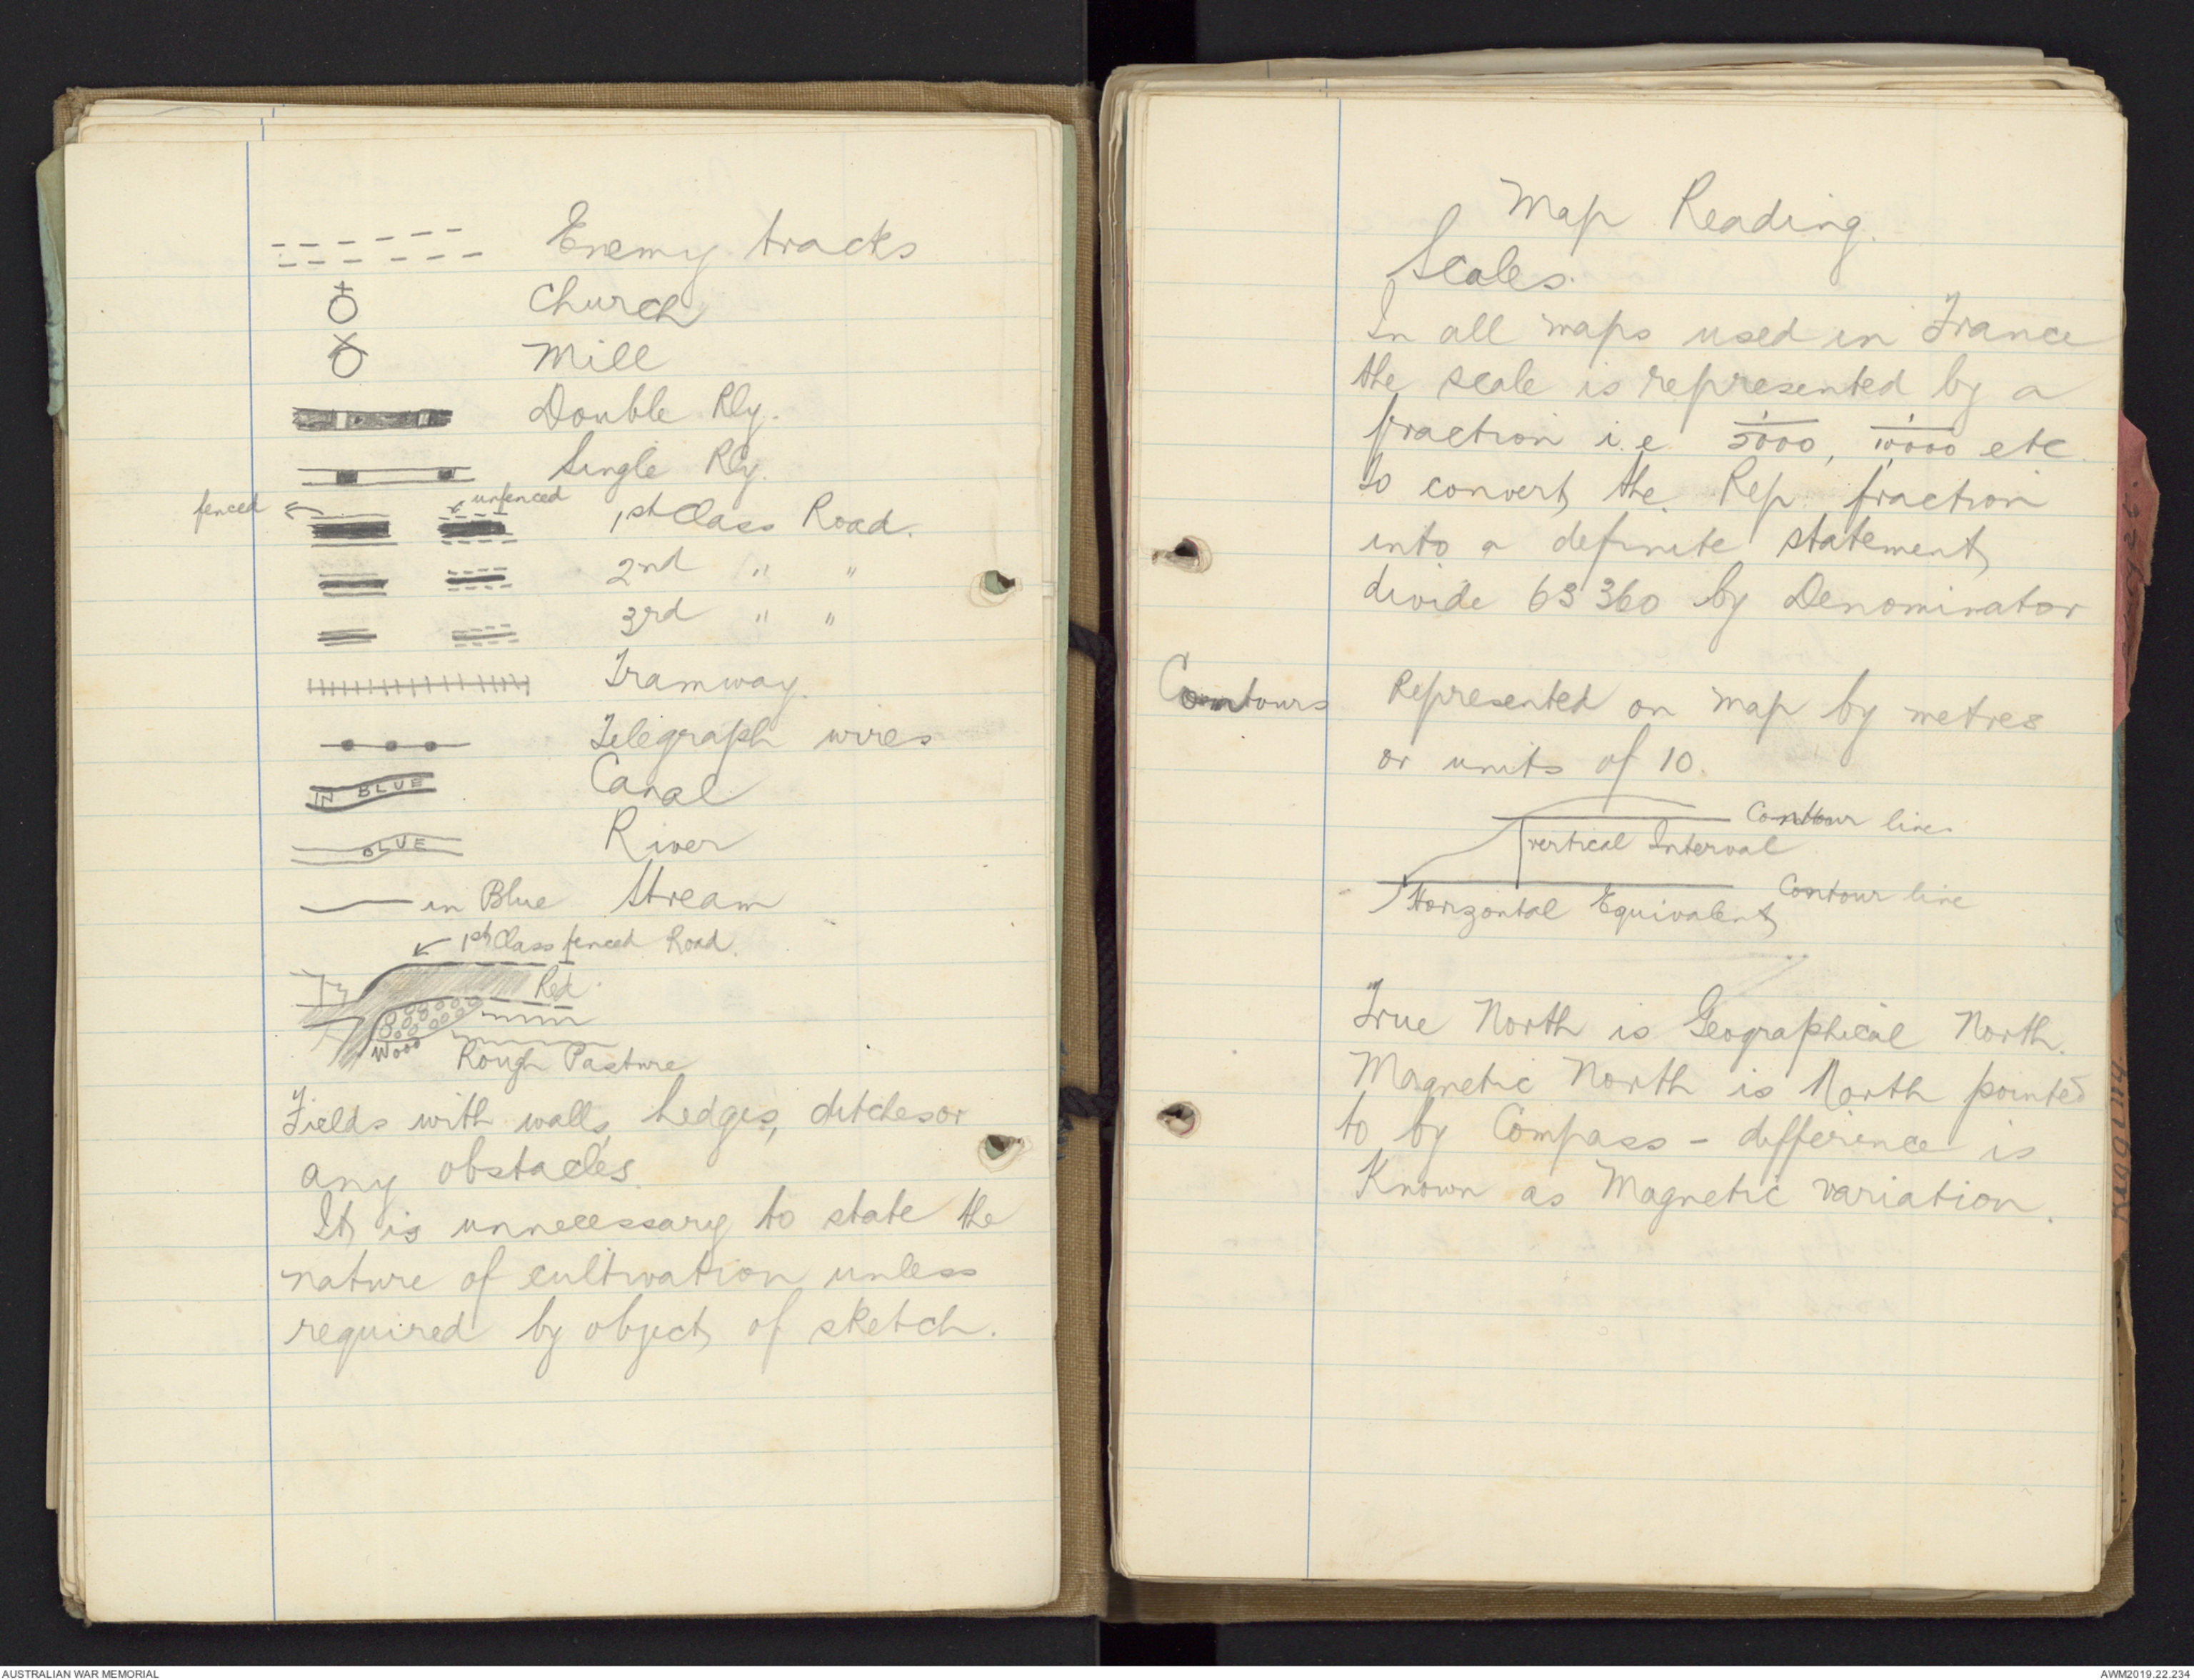 Enemy tracks
Church
Mill
Double Rly.
Single Rly.
fenced unfenced 1st Class Road.
2nd " "
3rd " "
Tramway.
Telegraph wires
IN BLUE Canal
BLUE River
in Blue Stream
1st Class fenced Road.
Red
Wood Rough Pasture
Fields with walls, hedges, ditches or
any obstacles.
It is unnecessary to state the
nature of cultivation unless
required by object of sketch.
Map Reading.
Scales.
In all maps used in France
the scale is represented by a
fraction i.e. 1/5000, 1/10000 etc.
to convert the Rep fraction
into a definite statement
divide 63360 by Denominator
Contours Represented on map by metres
or units of 10.
Contour line
vertical Interval
Contour line
Horizontal Equivalent
True North is Geographical North.
Magnetic North is North pointed
to by Compass - difference is
Known as Magnetic variation.
AUSTRALIAN WAR MEMORIAL
AWM2019.22.234